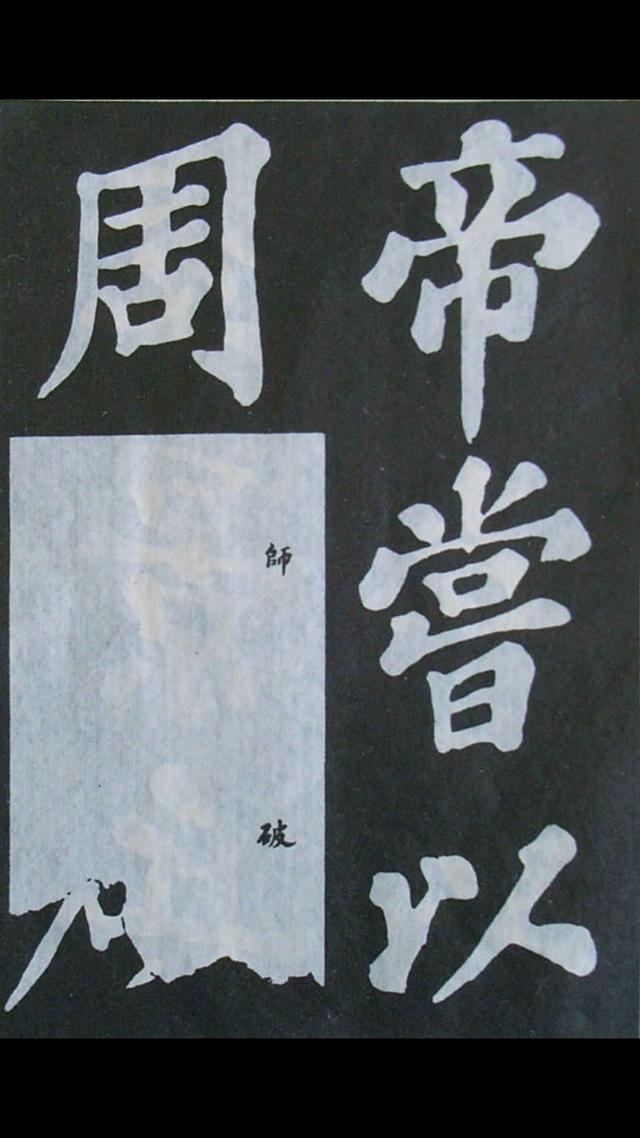 帝嘗以
周
師
破